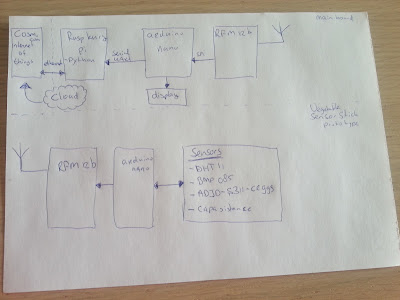 main board
Cosm
.com
internet
of
things
ethernet
Cloud
Raspberry
pi
-Python
serial
UART
arduino
nano
display
RFM12b
Vegetable
Sensor Stick
prototype
RFM12b
arduino
nano
Sensors
- DHT11
- BMP085
- Capasistance